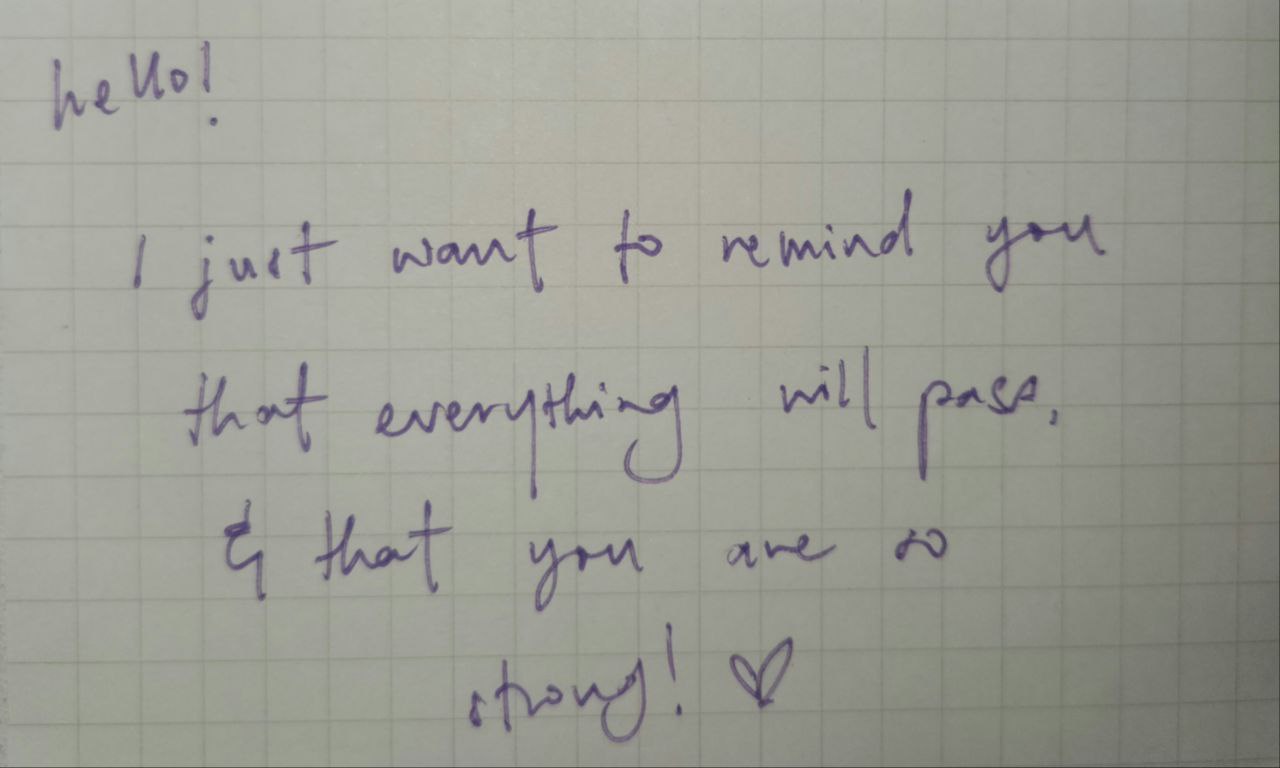 hello!
I just want to remind you
that everything will pass,
& that you are so
strong! ♡